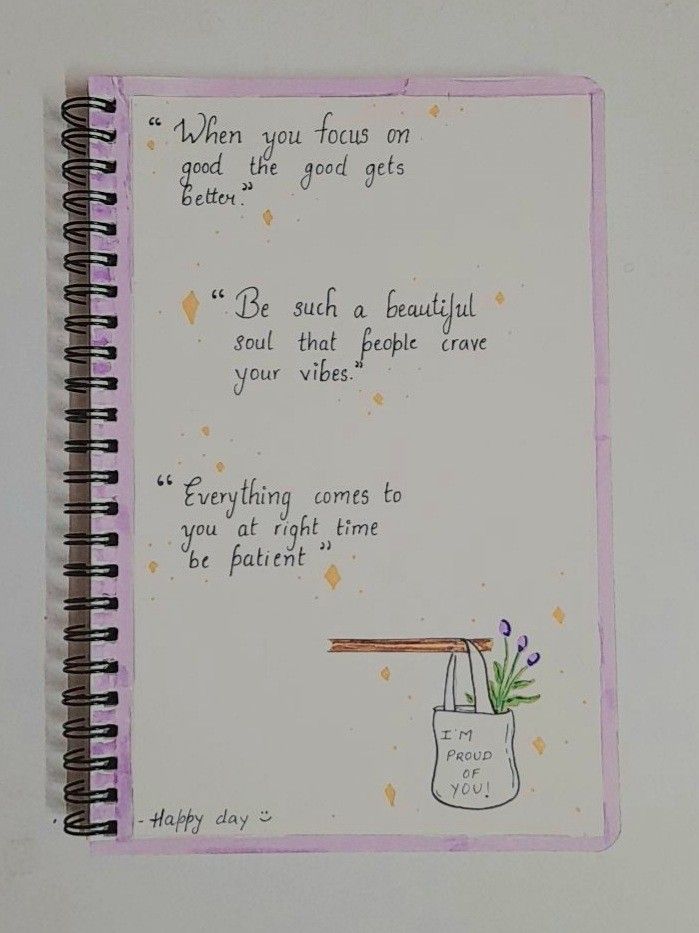 “ When you focus on
good the good gets
better.”
“ Be such a beautiful
soul that people crave
your vibes.”
“ Everything comes to
you at right time
be patient ”
I'M
PROUD
OF
YOU!
- Happy day :)